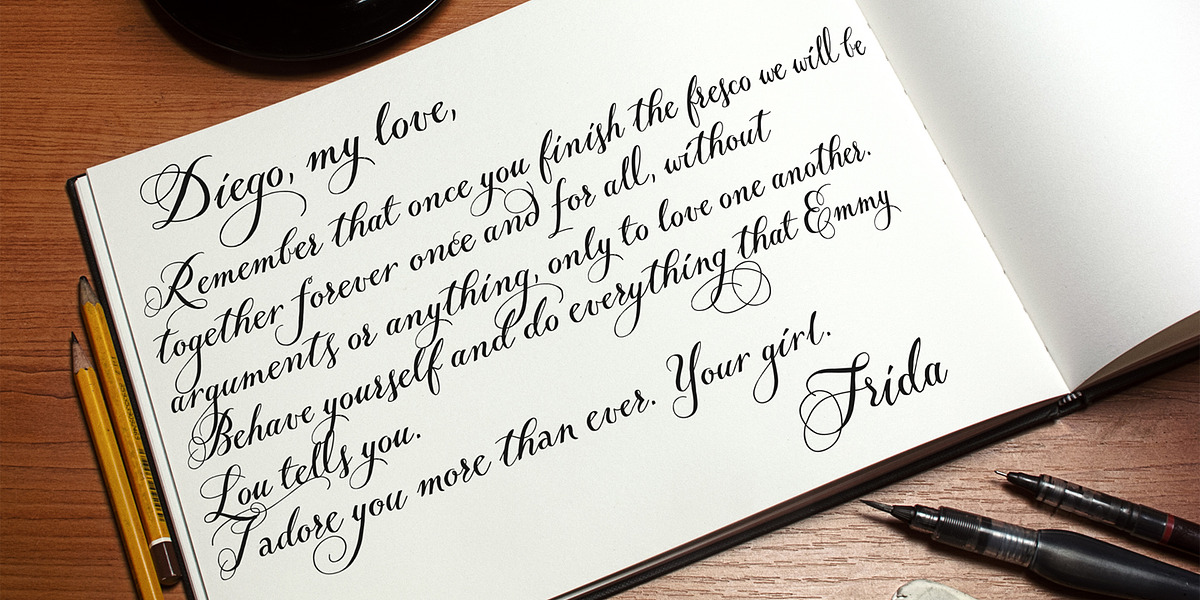 Diego, my love,
Remember that once you finish the fresco we will be
together forever once and for all, without
arguments or anything, only to love one another.
Behave yourself and do everything that Emmy
Lou tells you.
I adore you more than ever. Your girl.
Frida